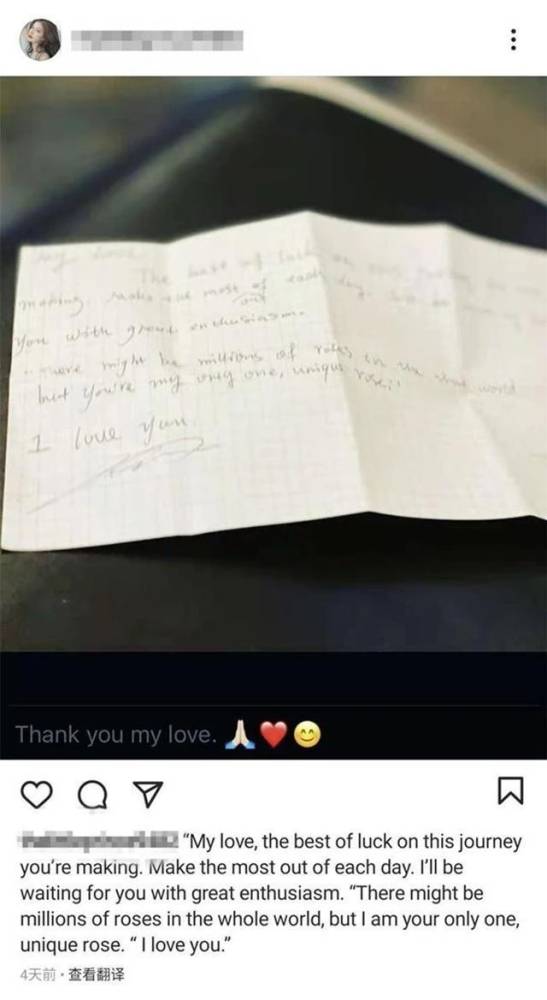 My love
The best of luck on
making. Make the most out of each day.
you with great enthusiasm.
"There might be millions of roses in the whole world
but you're my only one, unique rose."
I love you
Thank you my love. 🙏🏻❤️😊
“My love, the best of luck on this journey
you’re making. Make the most out of each day. I’ll be
waiting for you with great enthusiasm. “There might be
millions of roses in the whole world, but I am your only one,
unique rose. “ I love you.”
4天前 · 查看翻译